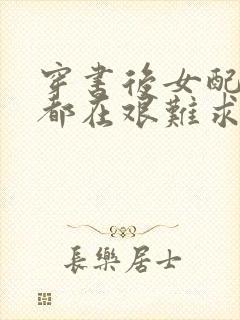 穿書後女配
都在艱難求
長樂居士